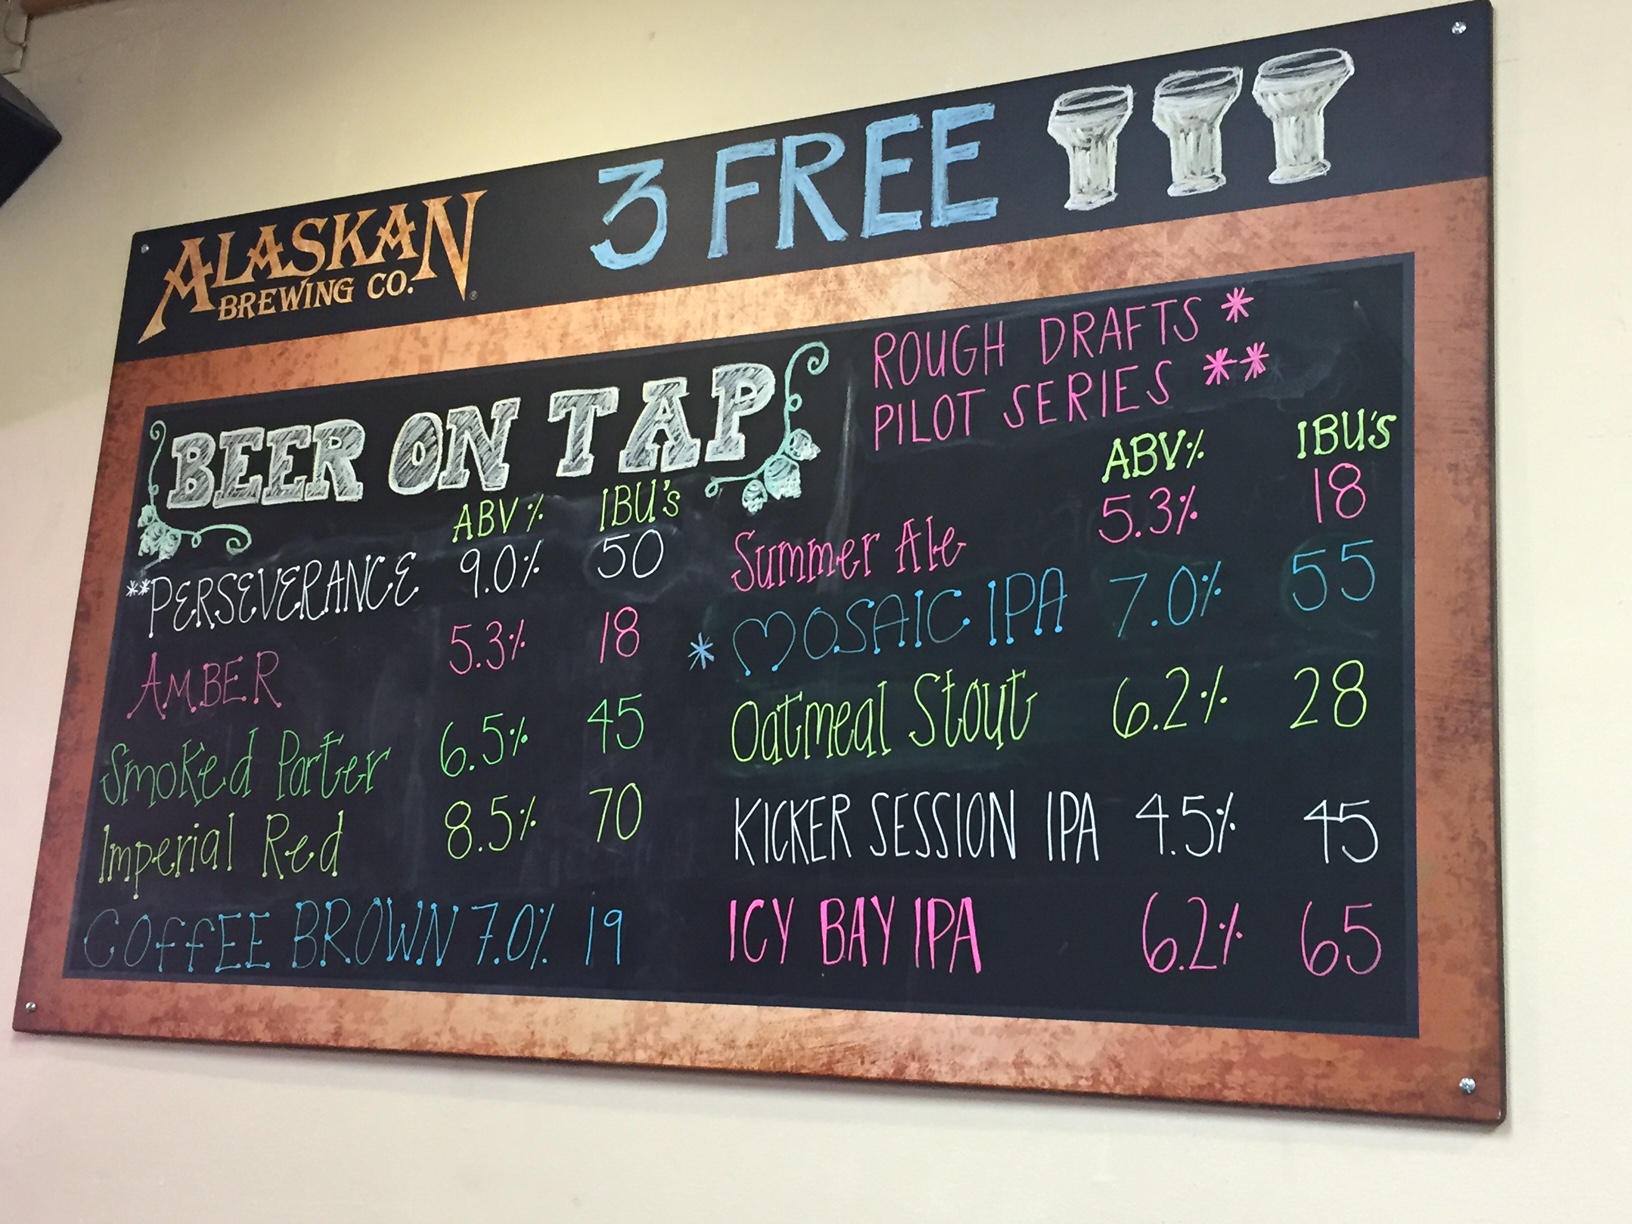 3 FREE
ALASKAN
BREWING CO.
ROUGH DRAFTS *
PILOT SERIES **
BEER ON TAP
ABV% IBU's
**PERSEVERANCE 9.0% 50
AMBER 5.3% 18
Smoked Porter 6.5% 45
Imperial Red 8.5% 70
COFFEE BROWN 7.0% 19
ABV% IBU's
Summer Ale 5.3% 18
* MOSAIC IPA 7.0% 55
Oatmeal Stout 6.2% 28
KICKER SESSION IPA 4.5% 45
ICY BAY IPA 6.2% 65